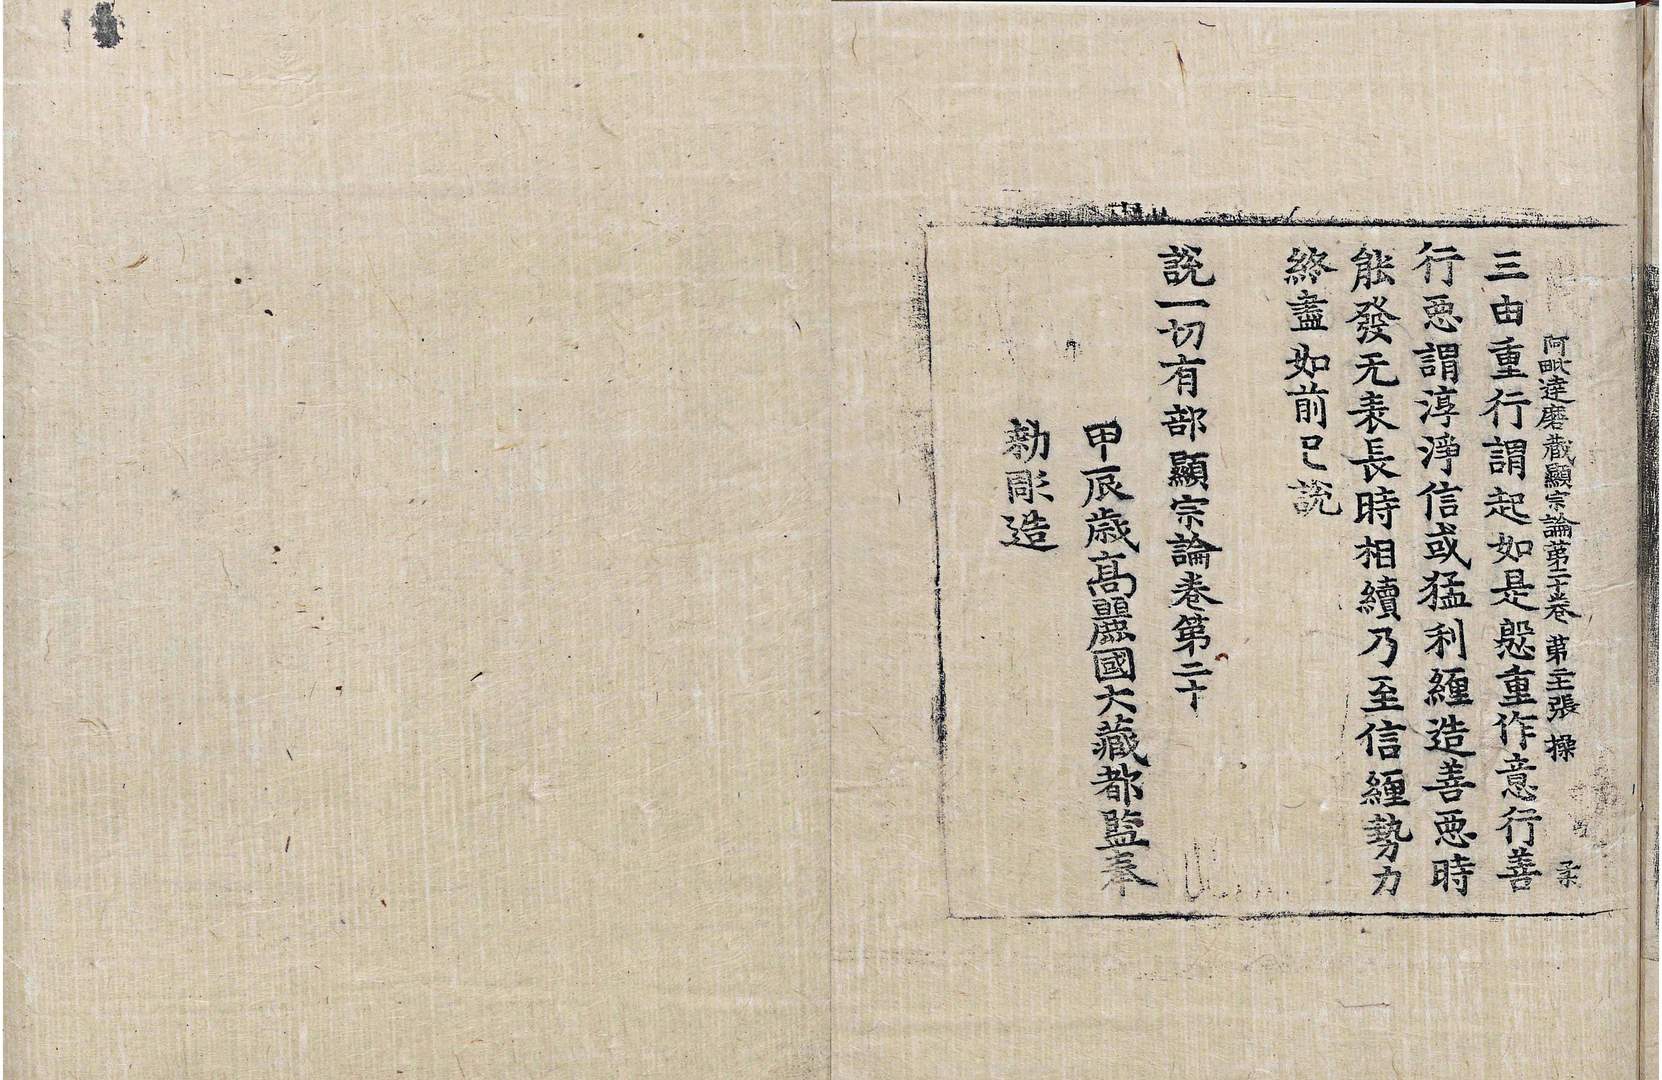 阿毗達磨藏顯宗論第二十卷 第二十張 操
三由重行謂起如是慇重作意行善
行惡謂淳淨信或猛利纏造善惡時
能發无表長時相續乃至信纏勢力
終盡如前已說
說一切有部顯宗論卷第二十
甲辰歲高麗國大藏都監奉
勑彫造